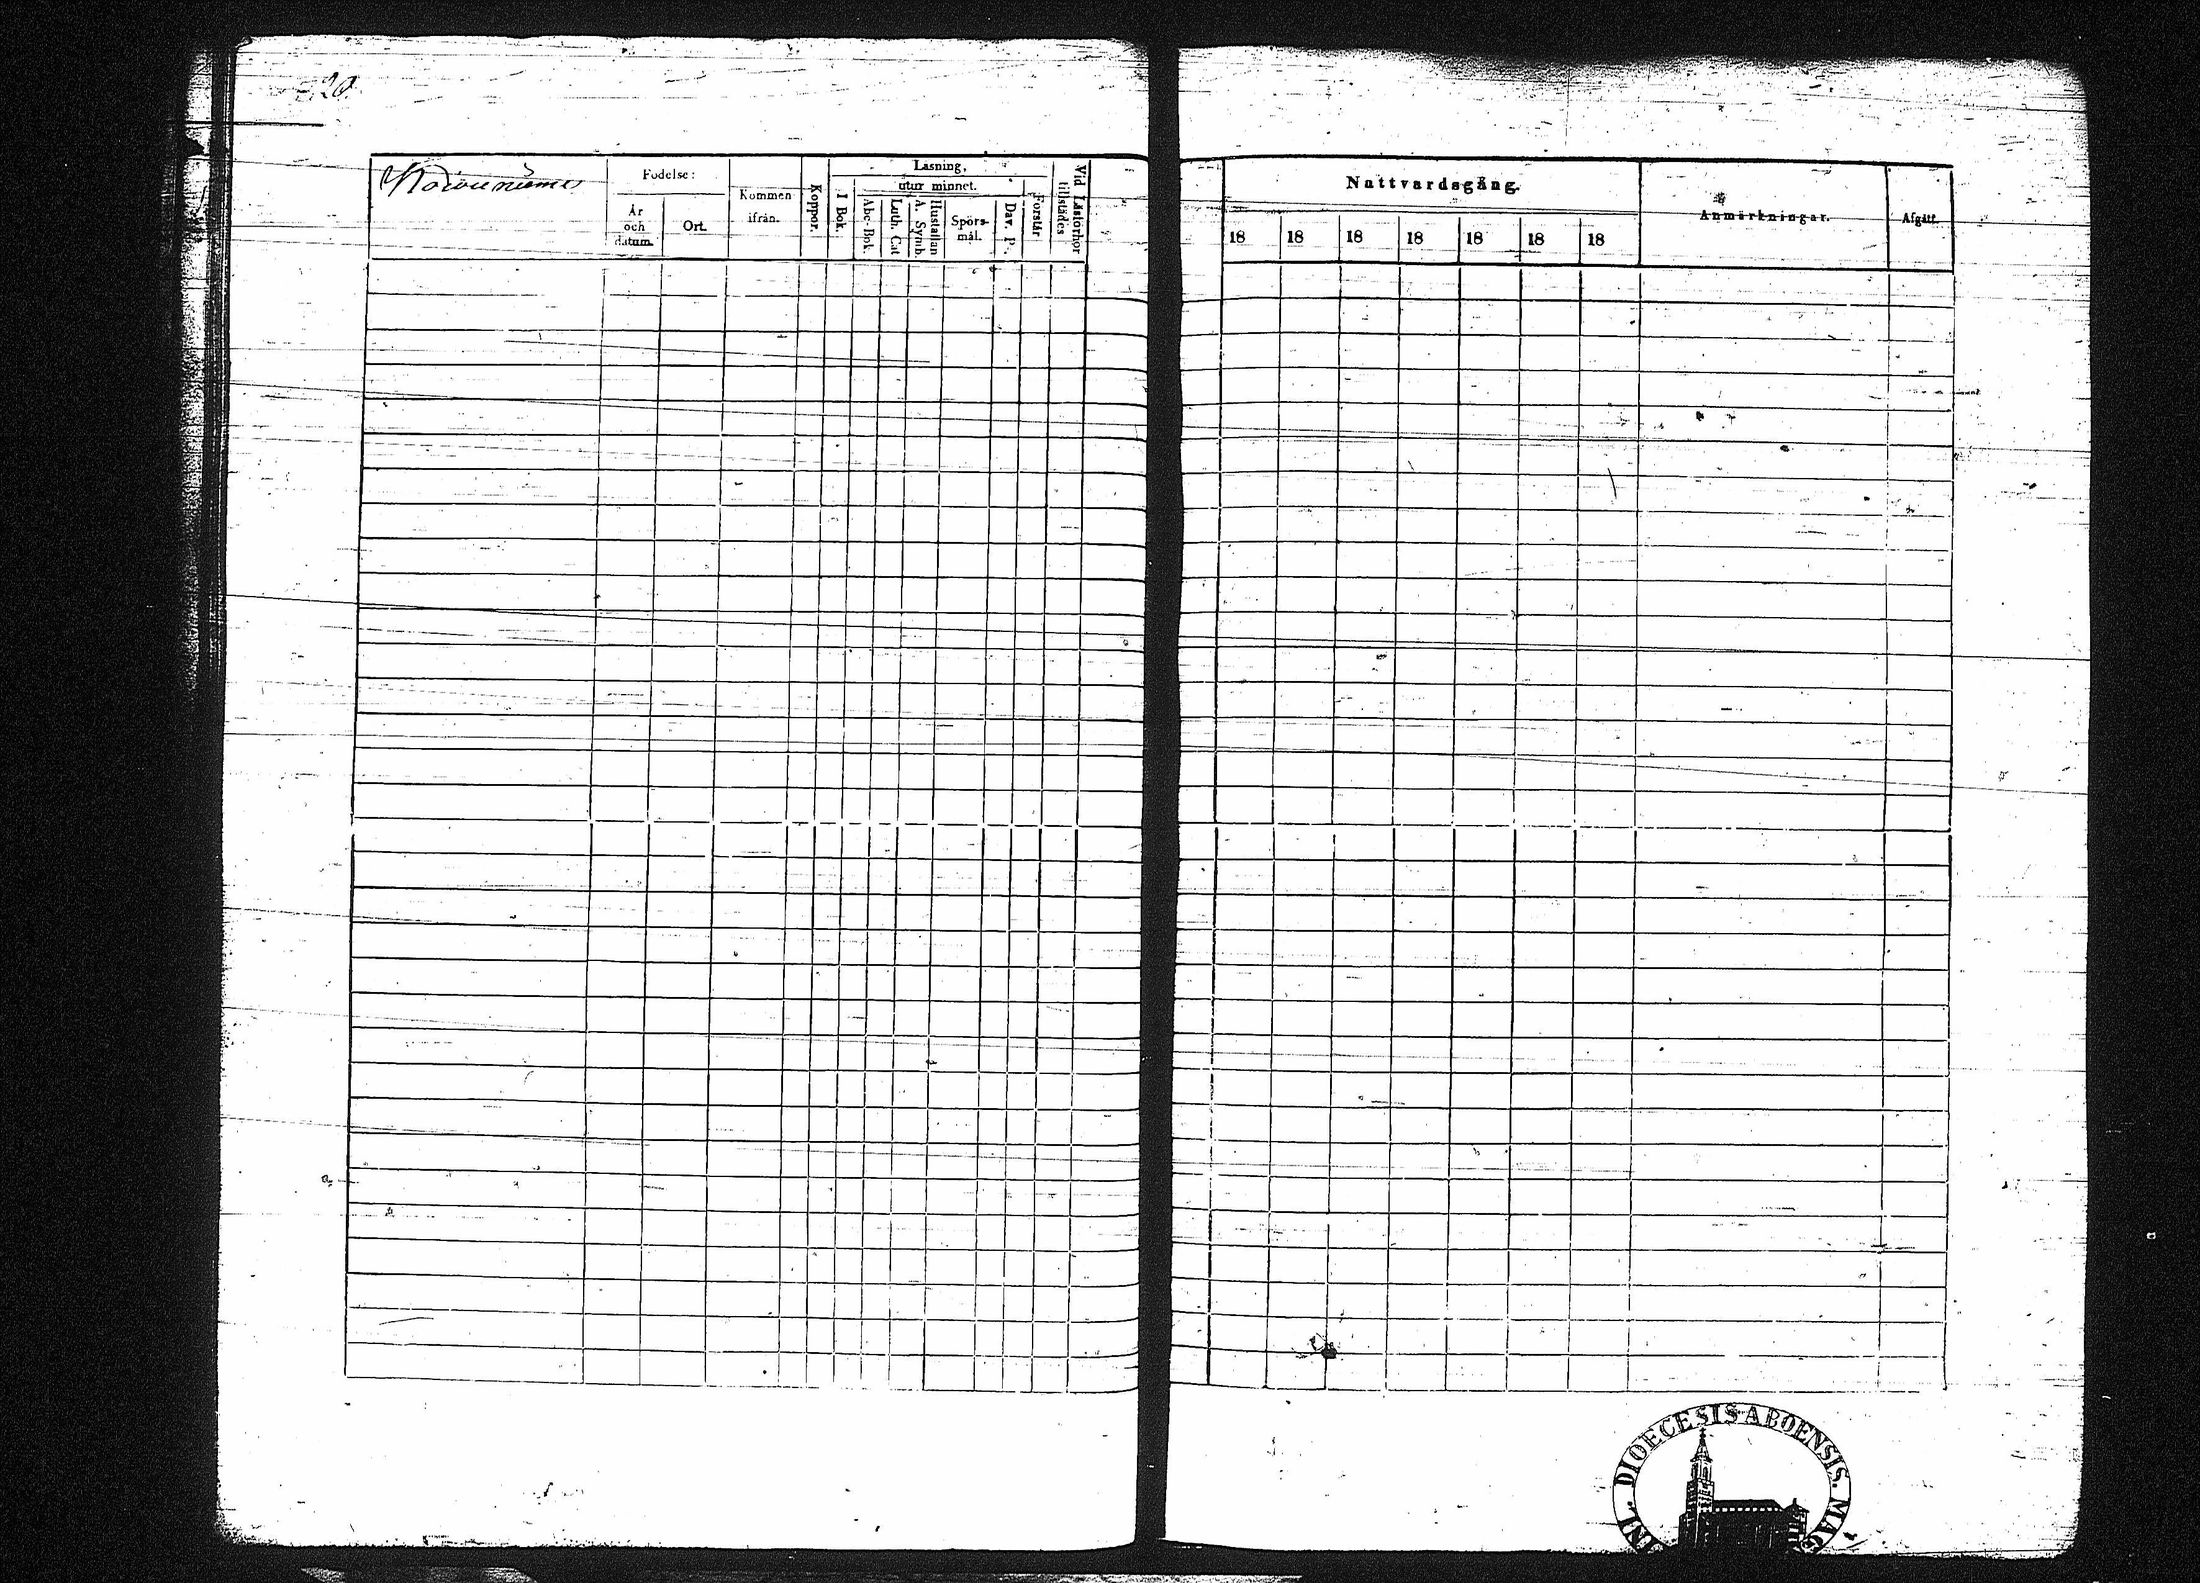 20.
Födelse:
År
och
datum.
Ort.
Kommen
ifrån.
Koppor.
Läsning,
utur minnet.
I Bok.
Abc-Bok.
Luth. Cat
Hustaflan
A. Symb.
Spörs-
mål.
Dav. Ps.
Förstår
Vid Läsförhör
tillstädes
Nattvardsgång.
18 18 18 18 18 18 18
Anmärkningar.
Afgått.
DIOECESIS ABOENSIS. MAG